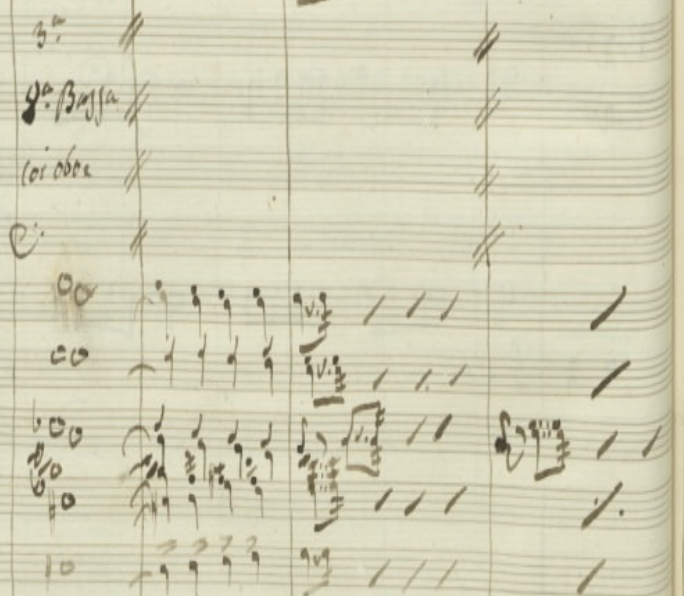 3ª
8ª Bassa
coi oboe